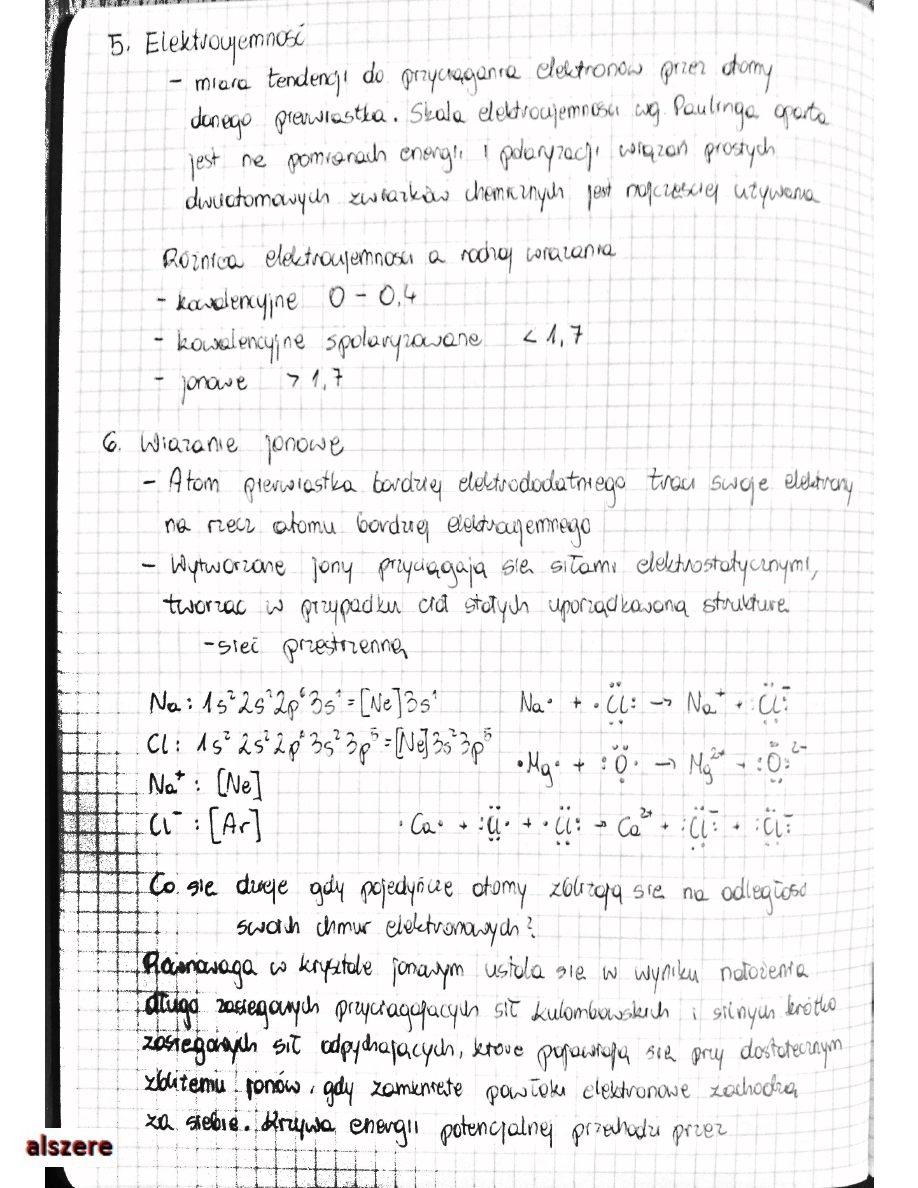 5. Elektroujemność
- miara tendencji do przyciągania elektronów przez atomy
danego pierwiastka. Skala elektroujemności wg Paulinga oparta
jest na pomiarach energii i polaryzacji wiązań prostych
dwuatomowych związków chemicznych jest najczęściej używana
Różnica elektroujemności a rodzaj wiązania
- kowalencyjne 0 - 0,4
- kowalencyjne spolaryzowane < 1,7
- jonowe > 1,7
6. Wiązanie jonowe
- Atom pierwiastka bardziej elektrododatniego traci swoje elektrony
na rzecz atomu bardziej elektroujemnego
- Wytworzone jony przyciągają się siłami elektrostatycznymi,
tworząc w przypadku ciał stałych uporządkowaną strukturę
- sieć przestrzenną
Na: 1s² 2s² 2p⁶ 3s¹ = [Ne] 3s¹ Na· + ·Cl: → Na⁺ + :Cl:⁻
Cl: 1s² 2s² 2p⁶ 3s² 3p⁵ = [Ne] 3s² 3p⁵
·Mg· + :O· → Mg²⁺ + :O:²⁻
Na⁺: [Ne]
Cl⁻: [Ar] ·Ca· + :Cl· + ·Cl: → Ca²⁺ + :Cl:⁻ + :Cl:⁻
Co się dzieje gdy pojedyńcze atomy zbliżają się na odległość
swoich chmur elektronowych?
Równowaga w krysztale jonowym ustala się w wyniku nałożenia
długo zasięgowych przyciągających sił kulombowskich i silnych krótko
zasięgowych sił odpychających, które pojawiają się przy dostatecznym
zbliżeniu jonów, gdy zamknięte powłoki elektronowe zachodzą
za siebie. Krzywa energii potencjalnej przechodzi przez
alszere